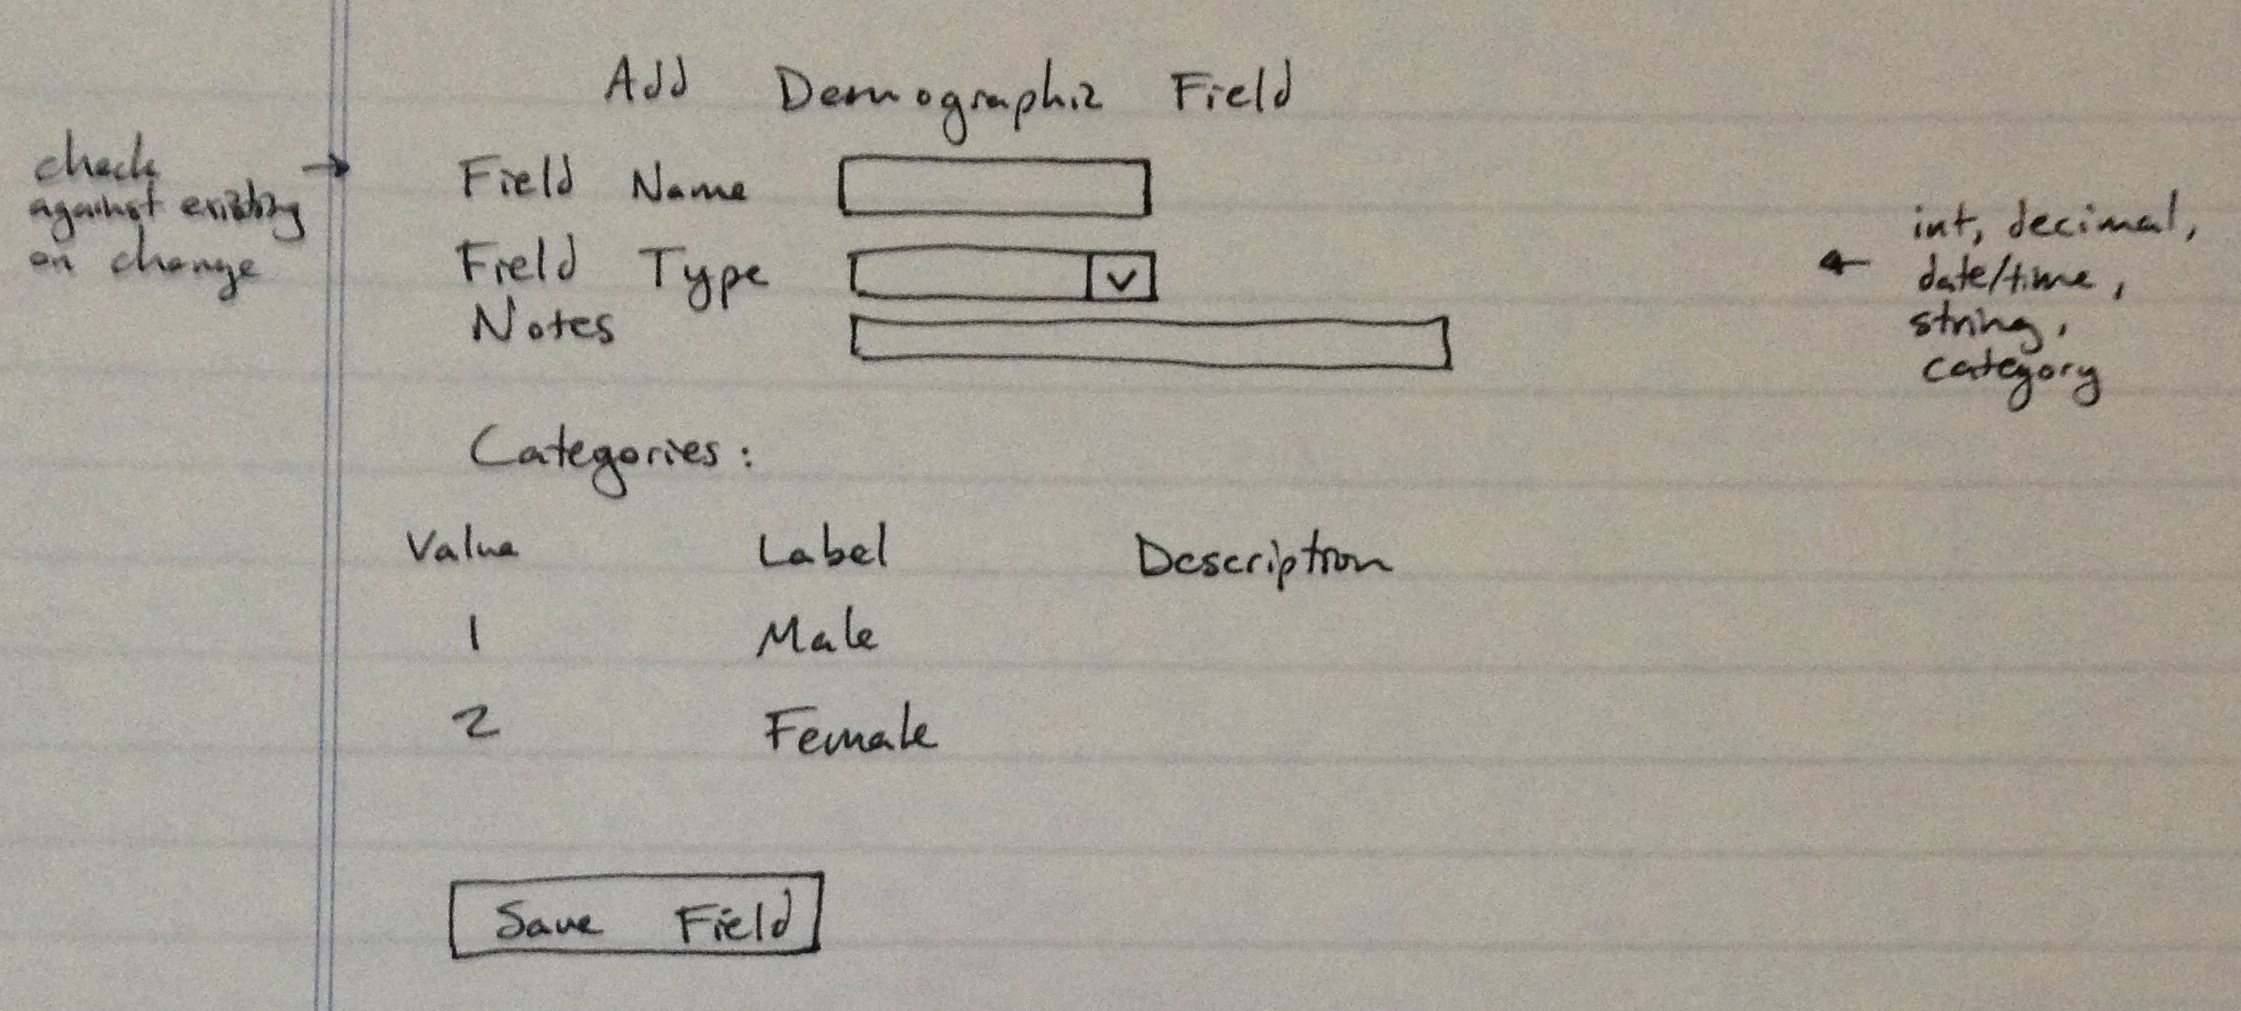 Add Demographic Field
check
against existing
on change
→ Field Name
Field Type
Notes
← int, decimal,
date/time,
string,
category
Categories:
Value Label Description
1 Male
2 Female
Save Field